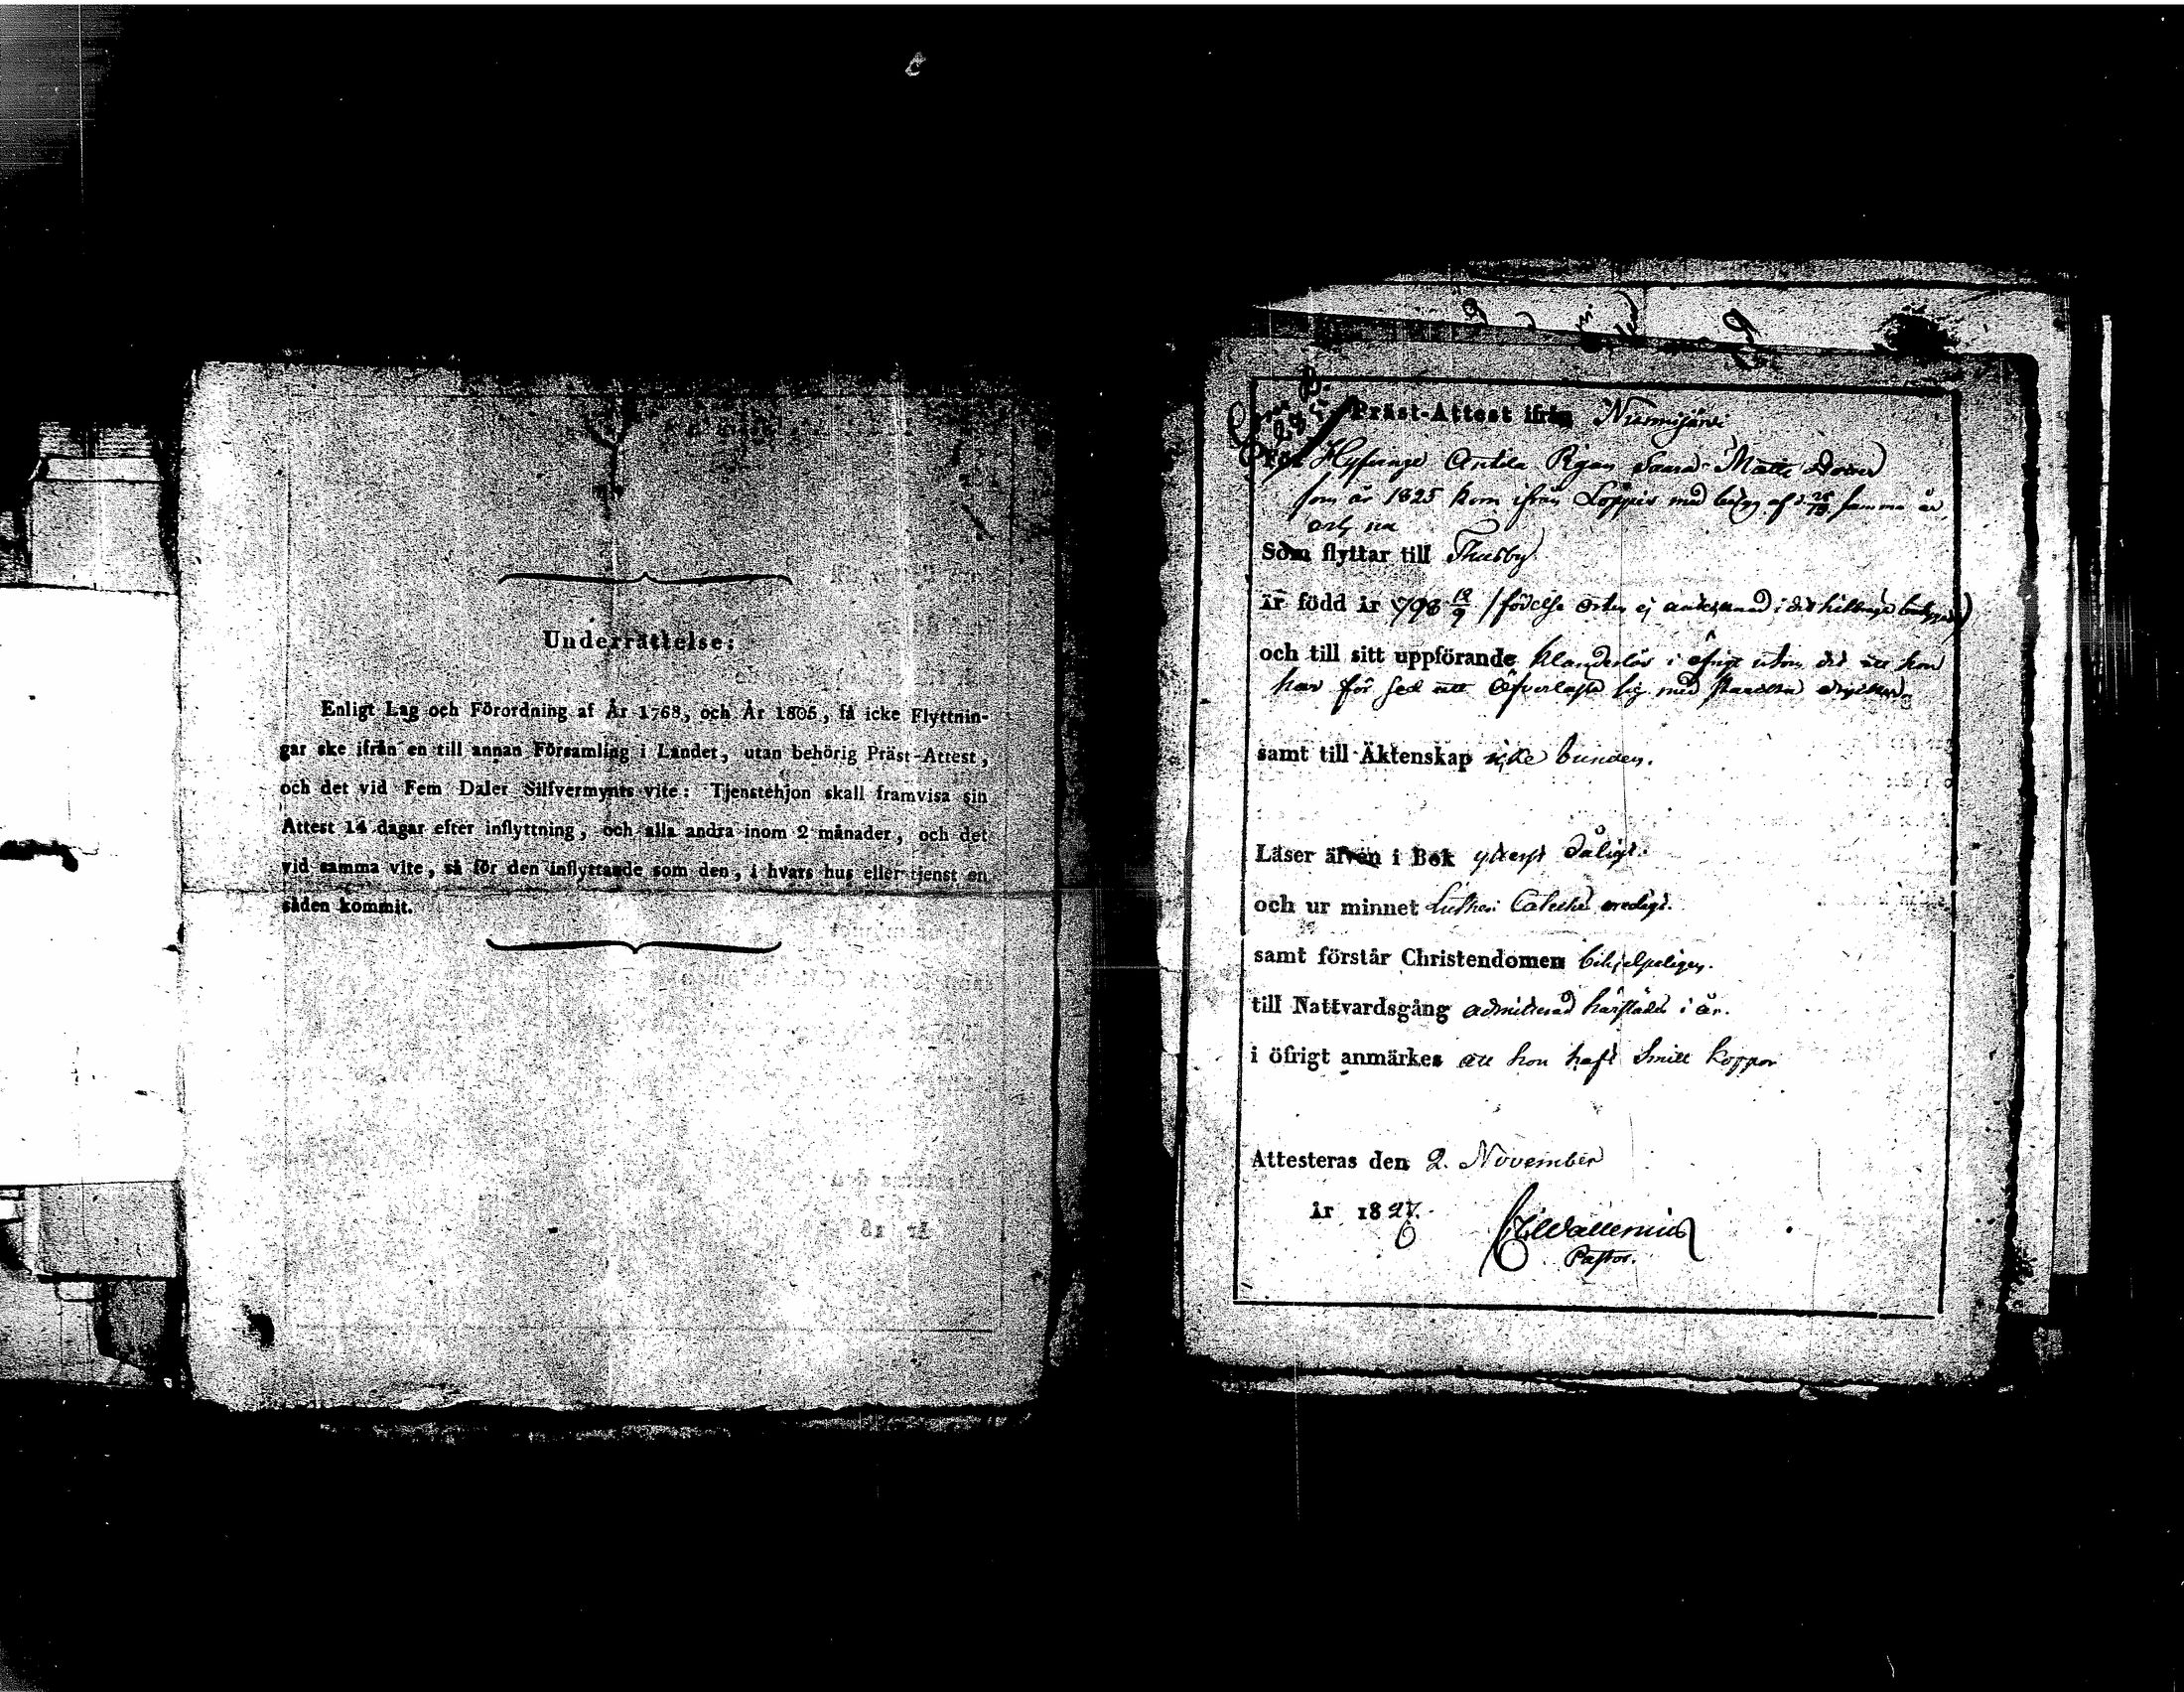 Underrättelse:
Enligt Lag och Förordning af År 1768, och År 1806, få icke Flyttnin-
gar ske ifrån en till annan Församling i Landet, utan behörig Präst-Attest,
och det vid Fem Daler Silfvermynts vite: Tjenstehjon skall framvisa sin
Attest 14 dagar efter inflyttning, och alla andra inom 2 månader, och det
vid samma vite, så för den inflyttande som den, i hvars hus eller tjenst en
såden kommit.
Präst-Attest ifrån Nurmijärvi
För Hyfvinge Antila Pigan Saara Matts Dotter
som år 1825 kom ifrån Loppis med betyg af d. samma år
och nu
Som flyttar till Thusby.
är född år 798 12/9 (födelse orten ej antecknad i det hitbragte betyget)
och till sitt uppförande klanderlös i öfrigt utom det att hon
har för sed att öfverlasta sig med starcka drycker.
samt till Äktenskap icke bunden.
Läser äfven i Bok ytterst dåligt.
och ur minnet Lutheri Cateches oredigt.
samt förstår Christendomen behjelpeligen.
till Nattvardsgång admitterad härstädes i år.
i öfrigt anmärkes att hon haft Smitt koppor
Attesteras den 2. November
år 1827.
Wallenius
Pastor.